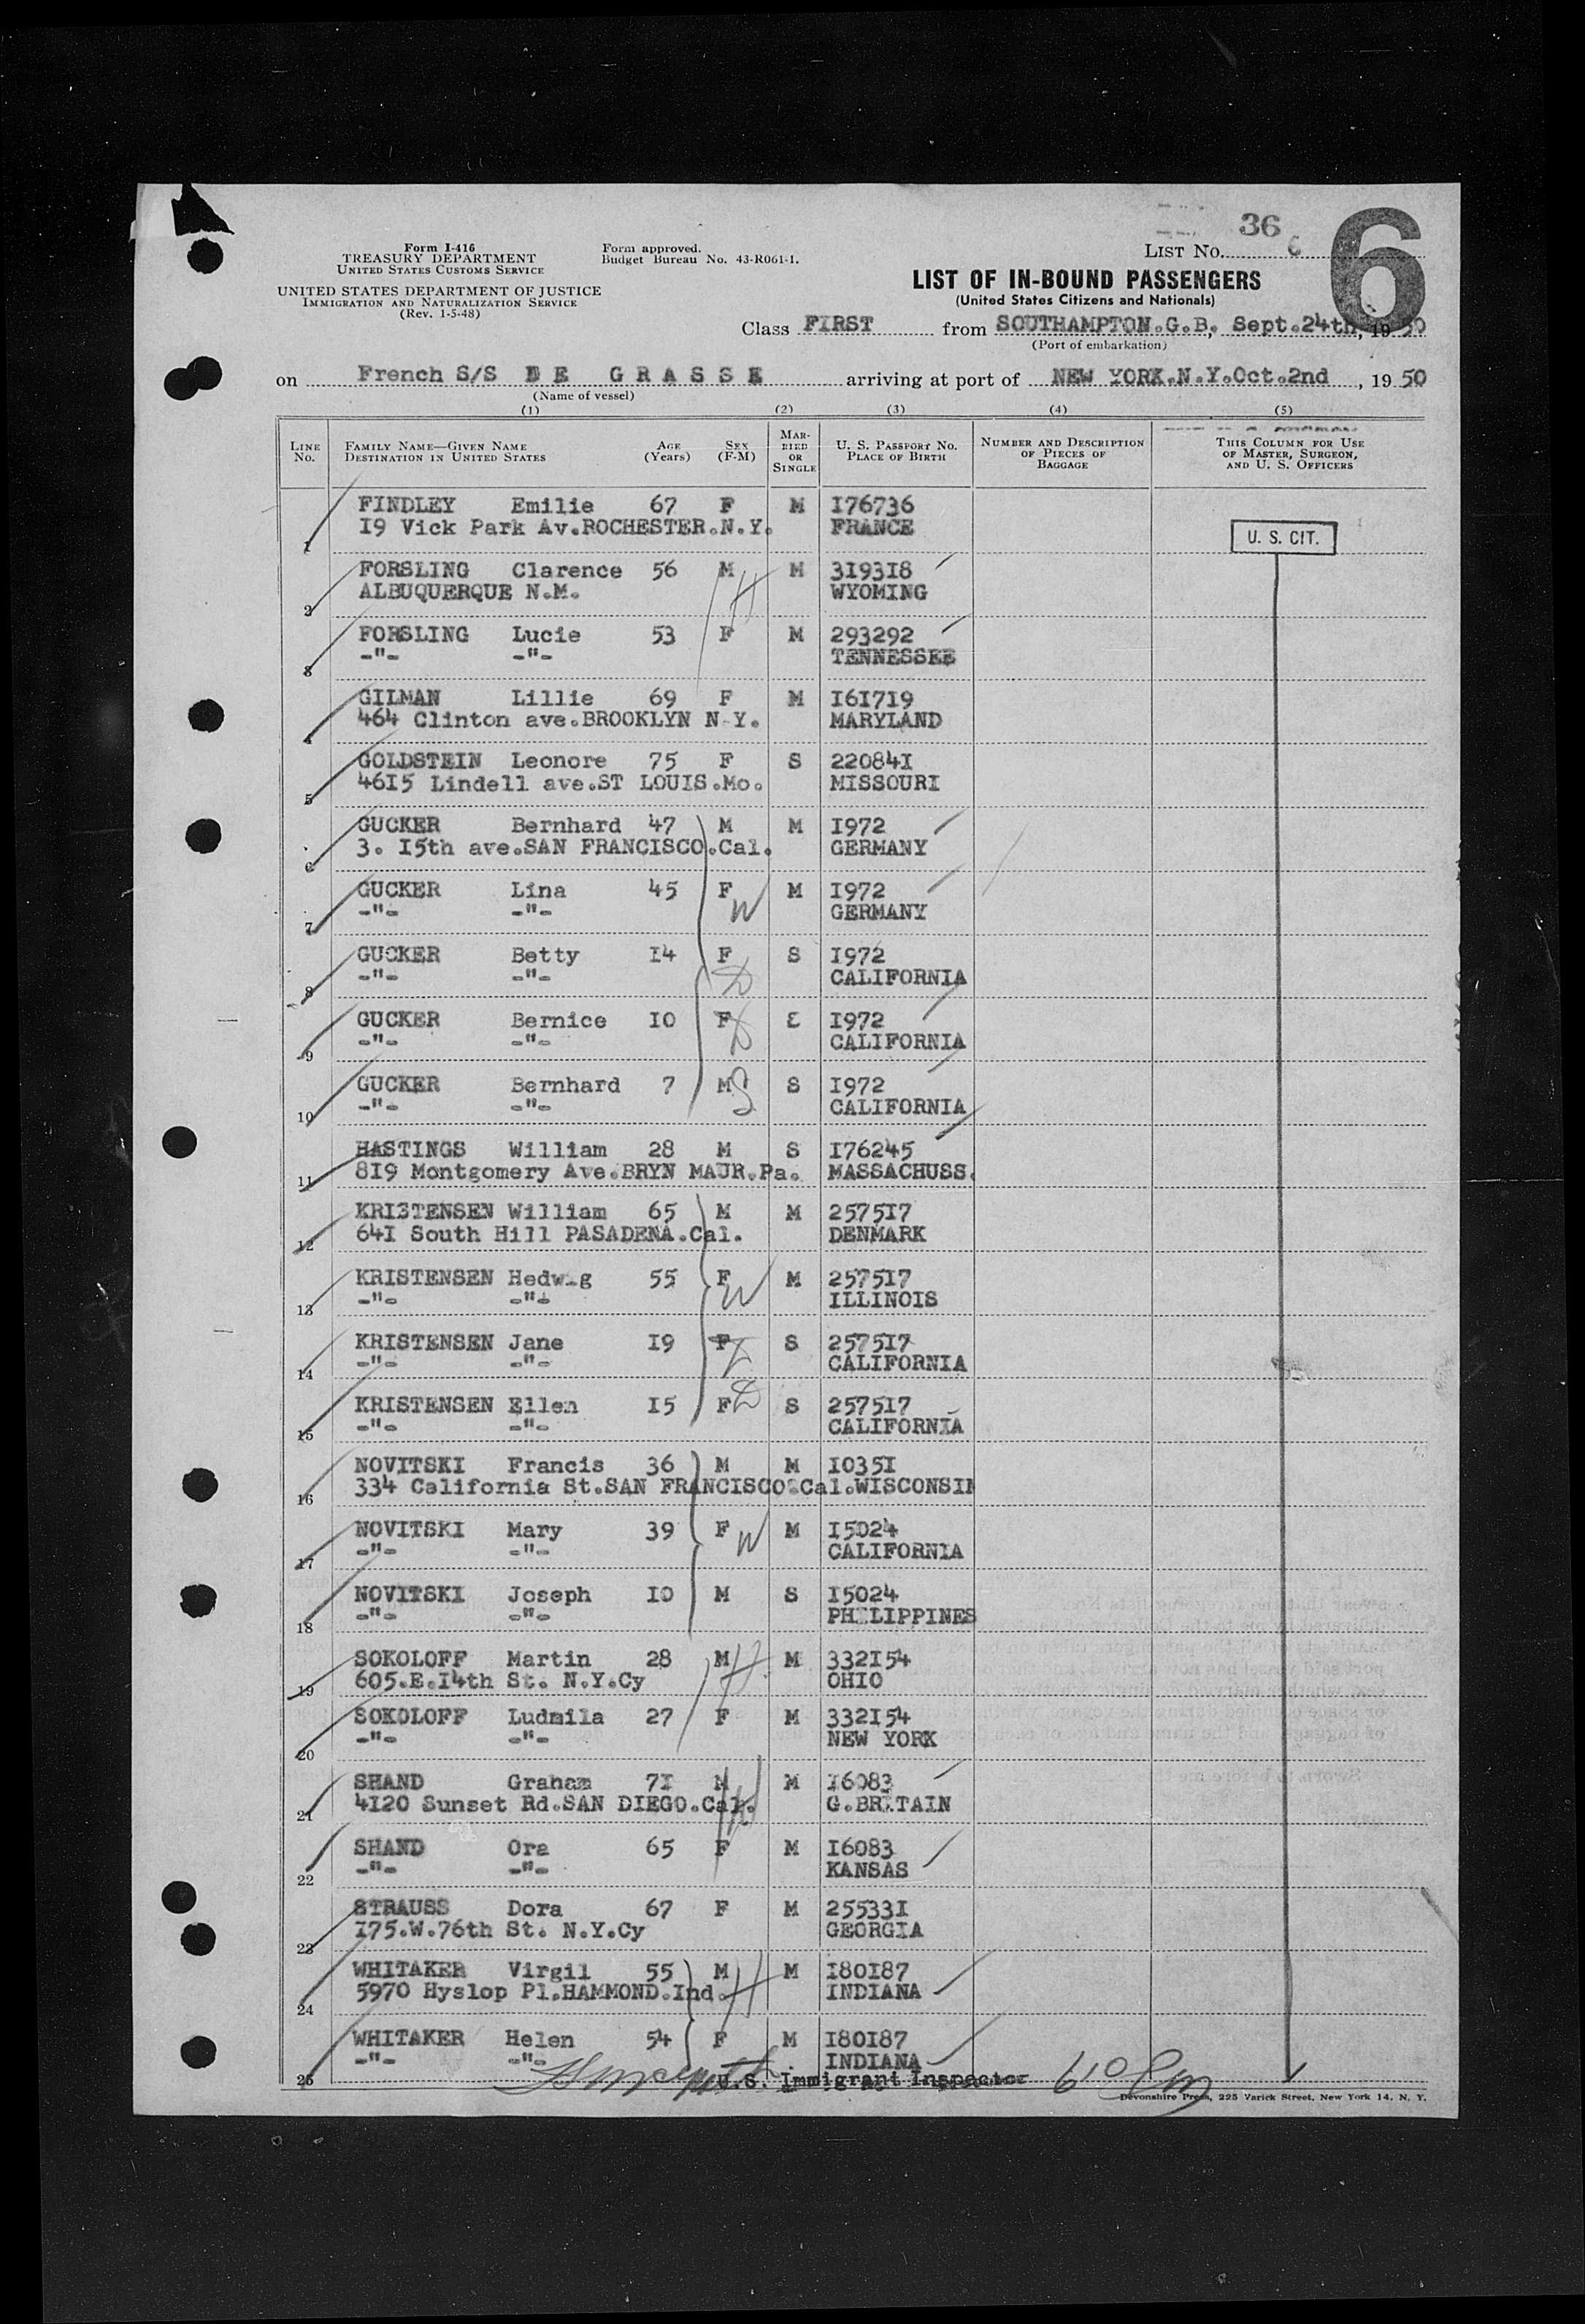 36
6
Form I-416
TREASURY DEPARTMENT
UNITED STATES CUSTOMS SERVICE
UNITED STATES DEPARTMENT OF JUSTICE
IMMIGRATION AND NATURALIZATION SERVICE
(Rev. 1-5-48)
Form approved.
Budget Bureau No. 43-R061-1.
LIST NO. 6
LIST OF IN-BOUND PASSENGERS
(United States Citizens and Nationals)
Class FIRST from SOUTHAMPTON.G.B, Sept.24th, 19 50
(Port of embarkation)
on French S/S DE GRASSE arriving at port of NEW YORK.N.Y.Oct.2nd , 19 50
(Name of vessel)
(1) (2) (3) (4) (5)
LINE NO. FAMILY NAME—GIVEN NAME DESTINATION IN UNITED STATES AGE (Years) SEX (F-M) MARRIED OR SINGLE U. S. PASSPORT NO. PLACE OF BIRTH NUMBER AND DESCRIPTION OF PIECES OF BAGGAGE THIS COLUMN FOR USE OF MASTER, SURGEON, AND U. S. OFFICERS
FINDLEY Emilie 67 F M I76736
1 I9 Vick Park Av.ROCHESTER.N.Y. FRANCE U. S. CIT.
FORSLING Clarence 56 M H M 3I93I8
2 ALBUQUERQUE N.M. WYOMING
FORSLING Lucie 53 F M 293292
3 -"- -"- TENNESSEE
GILMAN Lillie 69 F M I6I7I9
4 464 Clinton ave.BROOKLYN N-Y. MARYLAND
GOLDSTEIN Leonore 75 F S 22084I
5 46I5 Lindell ave.ST LOUIS.Mo. MISSOURI
GUCKER Bernhard 47 M M I972
6 3. I5th ave.SAN FRANCISCO.Cal. GERMANY
GUCKER Lina 45 F W M I972
7 -"- -"- GERMANY
GUCKER Betty I4 F D S I972
8 -"- -"- CALIFORNIA
GUCKER Bernice I0 F D S I972
9 -"- -"- CALIFORNIA
GUCKER Bernhard 7 M S S I972
10 -"- -"- CALIFORNIA
HASTINGS William 28 M S I76245
11 8I9 Montgomery Ave.BRYN MAUR.Pa. MASSACHUSS.
KRISTENSEN William 65 M M 2575I7
12 64I South Hill PASADENA.Cal. DENMARK
KRISTENSEN Hedwig 55 F W M 2575I7
13 -"- -"- ILLINOIS
KRISTENSEN Jane I9 F D S 2575I7
14 -"- -"- CALIFORNIA
KRISTENSEN Ellen I5 F D S 2575I7
15 -"- -"- CALIFORNIA
NOVITSKI Francis 36 M M I035I
16 334 California St.SAN FRANCISCO.Cal.WISCONSIN
NOVITSKI Mary 39 F W M I5024
17 -"- -"- CALIFORNIA
NOVITSKI Joseph I0 M S I5024
18 -"- -"- PHILIPPINES
SOKOLOFF Martin 28 M H M 332I54
19 605.E.I4th St. N.Y.Cy OHIO
SOKOLOFF Ludmila 27 F M 332I54
20 -"- -"- NEW YORK
SHAND Graham 7I M M I6083
21 4I20 Sunset Rd.SAN DIEGO.Cal. G.BRITAIN
SHAND Ora 65 F M I6083
22 -"- -"- KANSAS
STRAUSS Dora 67 F M 25533I
23 I75.W.76th St. N.Y.Cy GEORGIA
WHITAKER Virgil 55 M H M I80I87
24 5970 Hyslop Pl.HAMMOND.Ind. INDIANA
WHITAKER Helen 54 F M I80I87
25 -"- -"- INDIANA
U.S. Immigrant Inspector
Devonshire Press, 225 Varick Street, New York 14, N. Y.